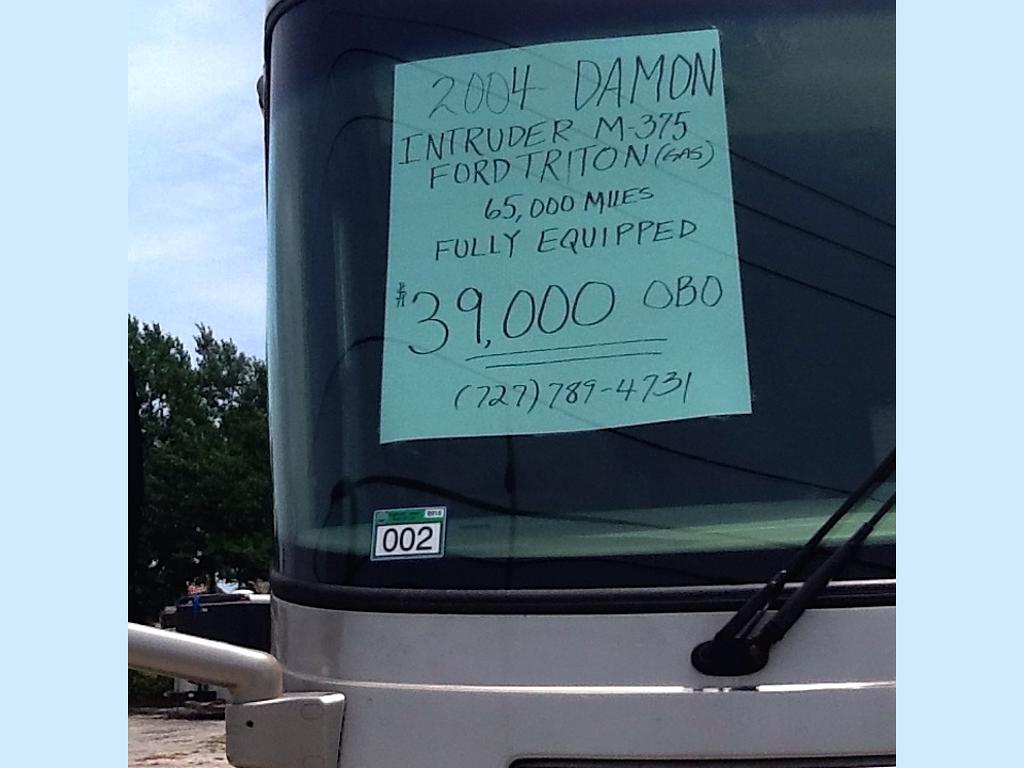 2004 DAMON
INTRUDER M-375
FORD TRITON (GAS)
65,000 MILES
FULLY EQUIPPED
$39,000 OBO
(727) 789-4731
002